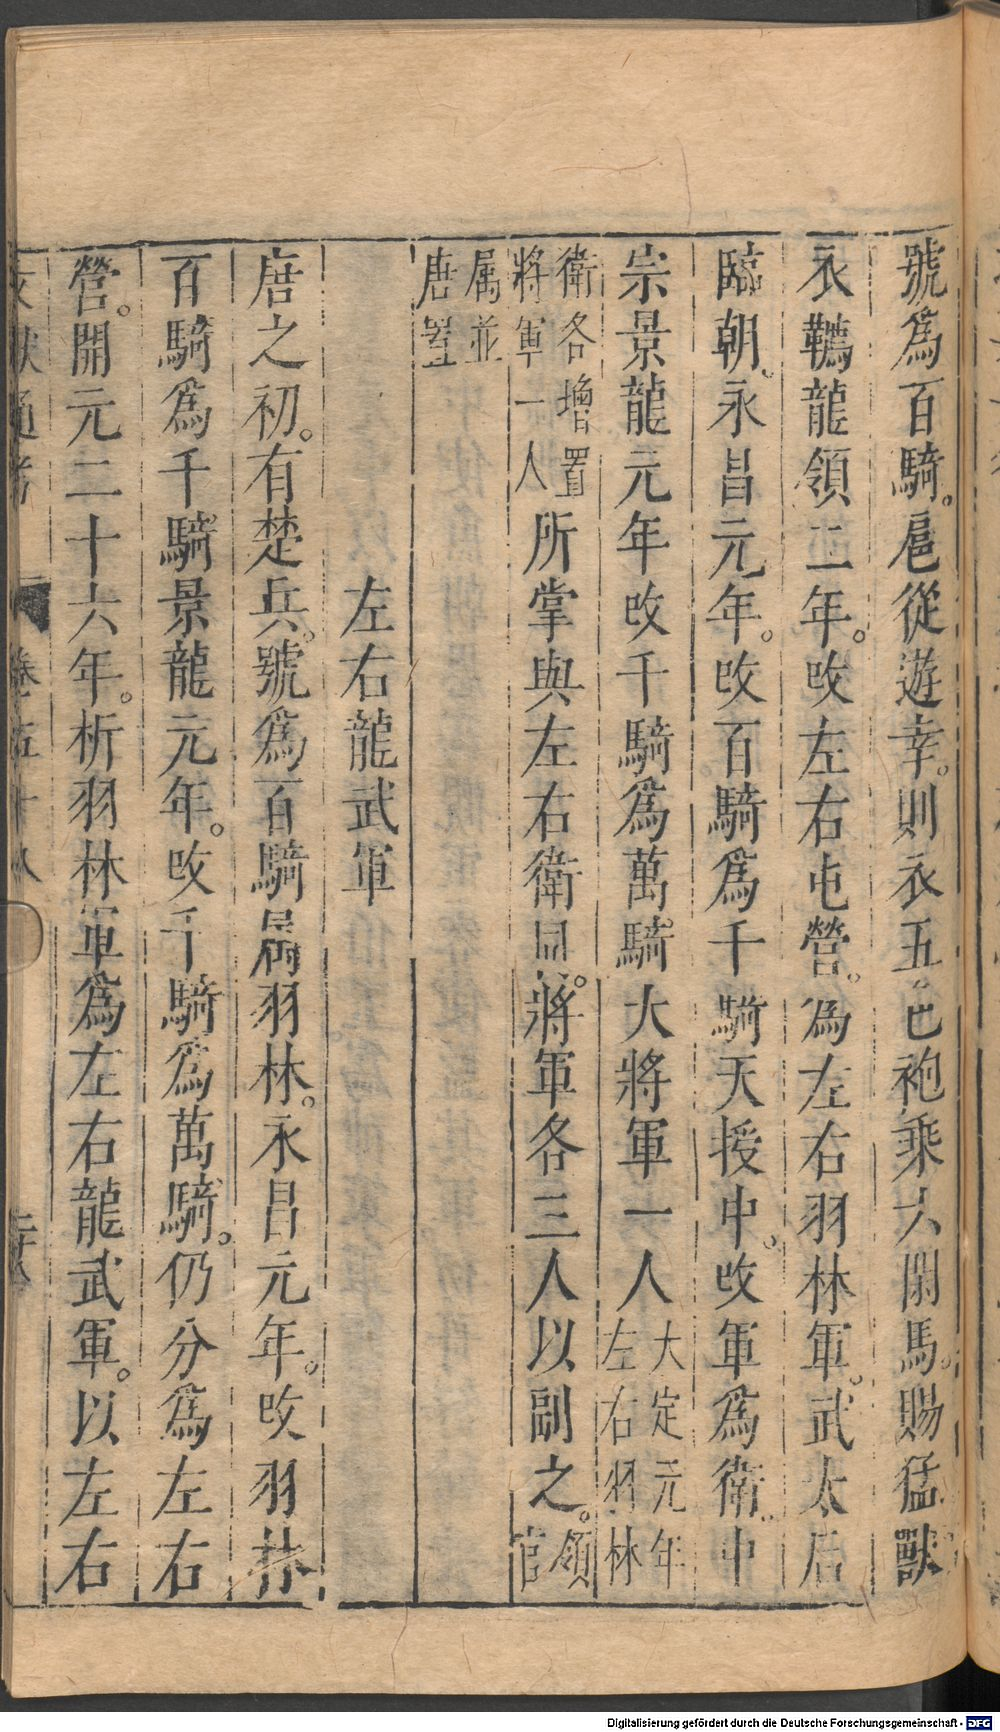 號爲百騎。扈從遊幸。則衣五色袍乘六閑馬。賜猛獸
衣韉龍領二年。改左右屯營。爲左右羽林軍。武太后
臨朝。永昌元年。改百騎爲千騎天授中。改軍爲衛。中
宗景龍元年改千騎爲萬騎大將軍一人大定元年左右羽林
衛各增置將軍一人所掌與左右衛同。將軍各三人以副之。領官
属並唐置
左右龍武軍
唐之初。有楚兵。號爲百騎屬羽林。永昌元年。改羽林
百騎爲千騎景龍元年。改千騎爲萬騎。仍分爲左右
營。開元二十六年。析羽林軍爲左右龍武軍。以左右
文獻通考 卷五十八 二十八
Digitalisierung gefördert durch die Deutsche Forschungsgemeinschaft - DFG